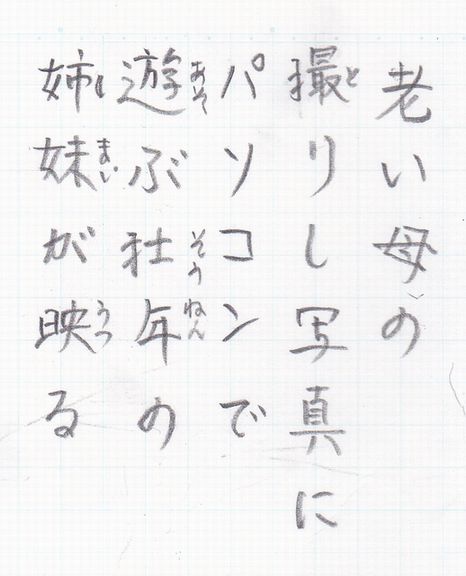 老い母の
撮りし写真に
パソコンで
遊ぶ壮年の
姉妹が映る
と
あそ
そうねん
しまい
うつ